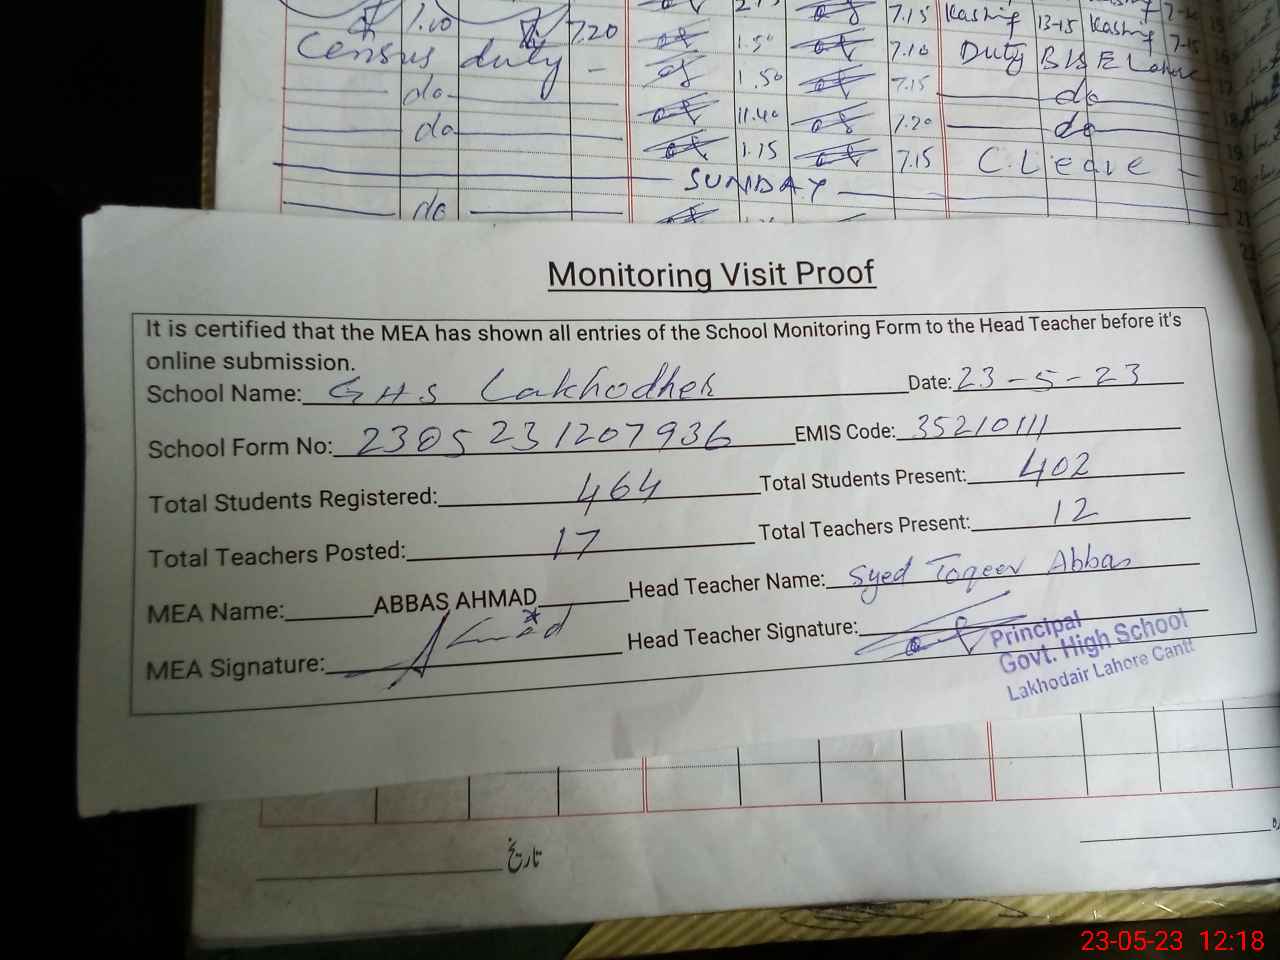 1.10 7.20 2.15 7.15 Kashif 13-15 Kashif
Census duty - 1.50 7.10 Duty BISE Lahore
do 1.50 7.15 do
do 11.40 7.20 do
1.15 7.15 C. Leave
SUNDAY
do
Monitoring Visit Proof
It is certified that the MEA has shown all entries of the School Monitoring Form to the Head Teacher before it's
online submission.
School Name: GHS Lakhodher Date: 23-5-23
School Form No: 2305231207936 EMIS Code: 35210111
Total Students Registered: 464 Total Students Present: 402
Total Teachers Posted: 17 Total Teachers Present: 12
MEA Name: ABBAS AHMAD Head Teacher Name: Syed Toqeer Abbas
MEA Signature: Ahmad Head Teacher Signature:
Principal
Govt. High School
Lakhodair Lahore Cantt
تاریخ
23-05-23 12:18